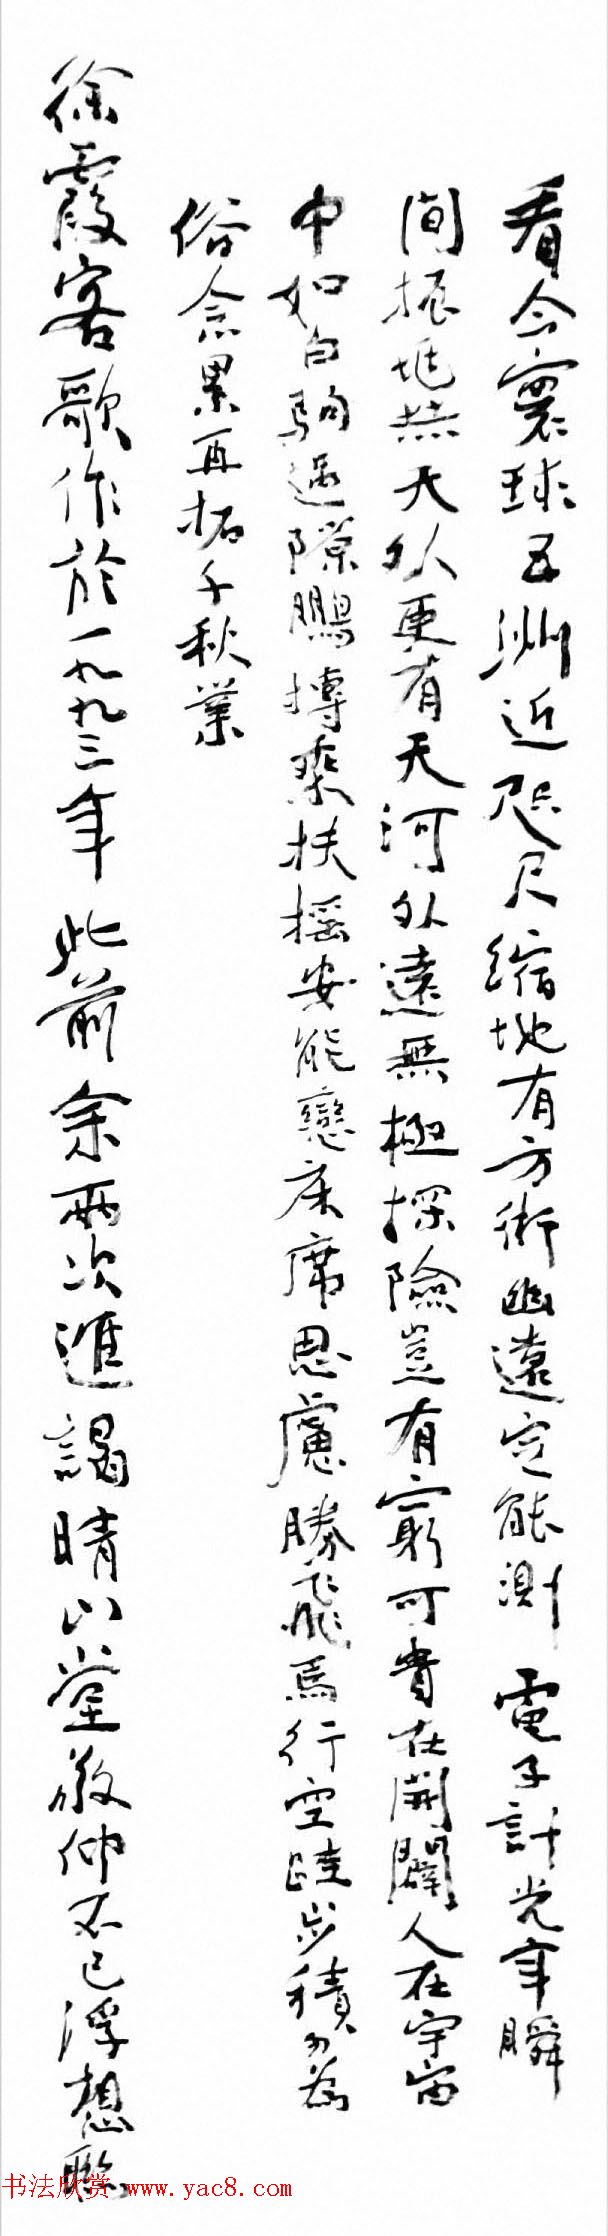 看今寰球五洲近咫尺縮地有方術幽遠定能測 電子計光年瞬
間振地然天外更有天河外遠無極探險豈有窮可貴在開闢人在宇宙
中如白駒過隙鵬摶乘扶搖安能戀床席思慮勝飛馬行空跬步積不為
俗念累再拓千秋業
徐霞客歌作於一九九三年此前余兩次進謁晴山堂敬仲不已浮想聯
书法欣赏 www.yac8.com